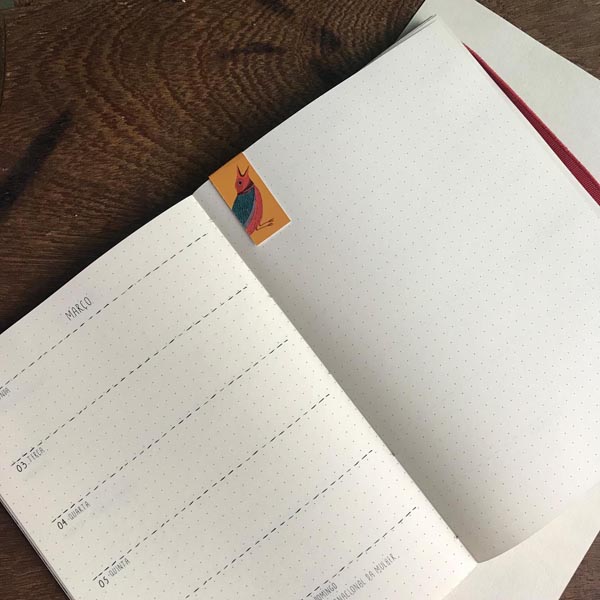 MARÇO
03 TERÇA
04 QUARTA
05 QUINTA
DOMINGO
NACIONAL DA MULHER